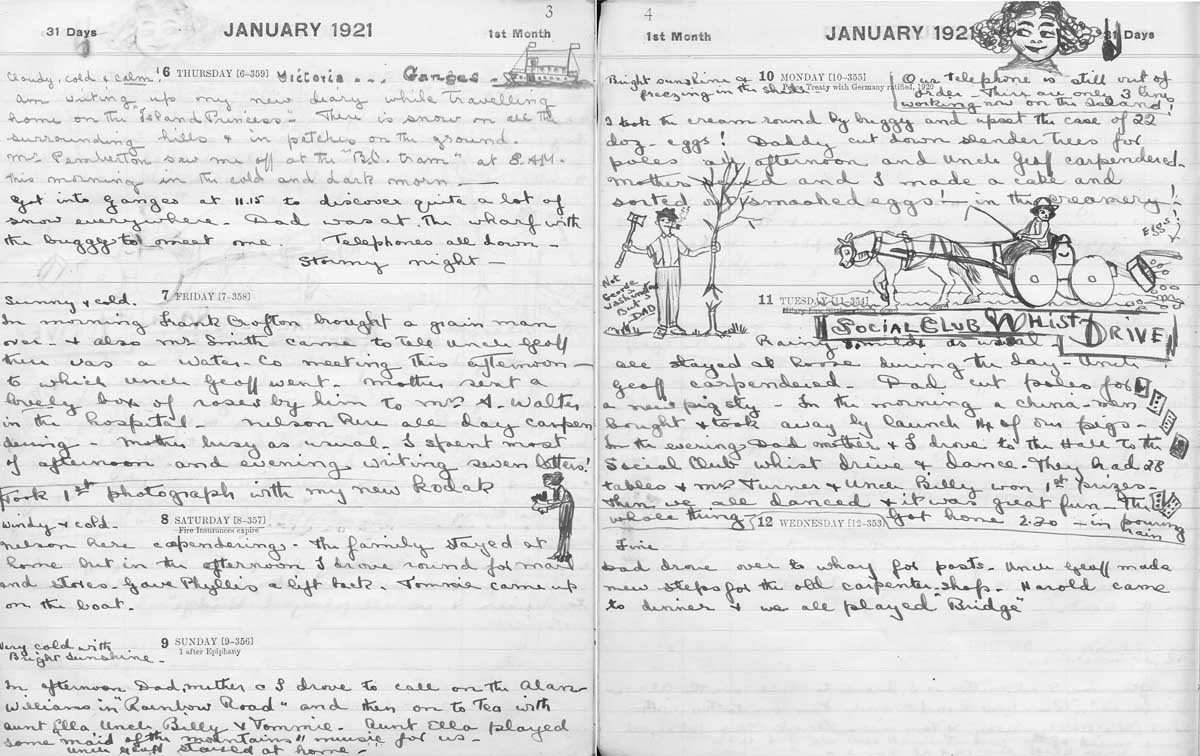 3
31 Days JANUARY 1921 1st Month
Cloudy, cold & calm! 6 THURSDAY [6-359] Victoria ... Ganges -
Am writing up my new diary while travelling
home on the "Island Princess". There is snow on all the
surrounding hills & in patches on the ground.
Mrs Pemberton saw me off at the "B.C. tram" at 8. AM.
this morning in the cold and dark morn -
Got into Ganges at 11.15 to discover quite a lot of
snow everywhere. Dad was at the wharf with
the buggy to meet me. Telephones all down -
Stormy night -
7 FRIDAY [7-358]
Sunny & cold.
In morning Frank Crofton brought a grain man
over. & also Mr Smith came to tell Uncle Geoff
there was a Water-Co meeting this afternoon -
to which Uncle Geoff went. Mother sent a
lovely box of roses by him to Mrs A. Walter
in the hospital. Nelson here all day carpen
dering - Mother busy as usual. I spent most
of afternoon and evening writing seven letters!
Took 1st photograph with my new Kodak
8 SATURDAY [8-357]
Fire Insurances expire
Windy & cold.
Nelson here capendering. The family stayed at
home but in the afternoon I drove round for mail
and stores. Gave Phyllis a lift back. Tommie came up
on the boat.
9 SUNDAY [9-356]
1 after Epiphany
Very cold with
Bright sunshine -
In afternoon Dad, mother & I drove to call on the Alan
Williams in "Rainbow Road" and then on to Tea with
Aunt Ella Uncle Billy & Tommie. Aunt Ella played
some "maid of the mountains" music for us -
Uncle Geoff stayed at home -
4
1st Month JANUARY 1921 31 Days
Bright sunshine & 10 MONDAY [10-355]
freezing in the shade Peace Treaty with Germany ratified, 1920
Our telephone is still out of
order - There are only 3 lines
working now on the Island!
I took the cream round by buggy and upset the case of 22
doz - eggs! Daddy cut down slender trees for
poles all afternoon and Uncle Geoff carpendered.
Mother and I made a cake and
sorted out smashed eggs! - in the creamery!
Eggs!
Not
George
Washington
But
DAD
11 TUESDAY [11-354]
SOCIAL CLUB WHIST DRIVE
Rainy & mild as usual
all stayed at home during the day - Uncle
Geoff carpendered - Dad cut poles for
a new pig sty - In the morning a china-man
bought & took away by launch 14 of our pigs -
In the evening Dad mother & I drove to the Hall to the
Social Club whist drive & dance - They had 28
tables & Mrs Turner & Uncle Billy won 1st Prizes -
Then we all danced & it was great fun - The
whole thing - Got home 2.20 - in pouring
rain
12 WEDNESDAY [12-353]
Fine
Dad drove over to wharf for posts. Uncle Geoff made
new steps for the old carpenter-shop. Harold came
to dinner & we all played "Bridge"